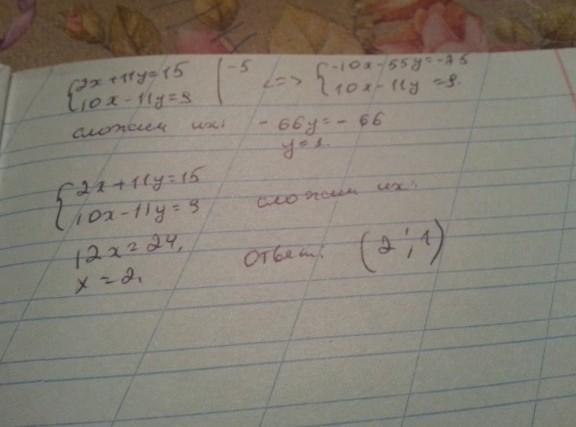 {2x+11y=15 |-5 <=> {-10x-55y=-75
{10x-11y=9 | {10x-11y=9.
сложим их: -66y=-66
y=1.
{2x+11y=15
{10x-11y=9 сложим их:
12x=24,
x=2. Ответ: (2;1)